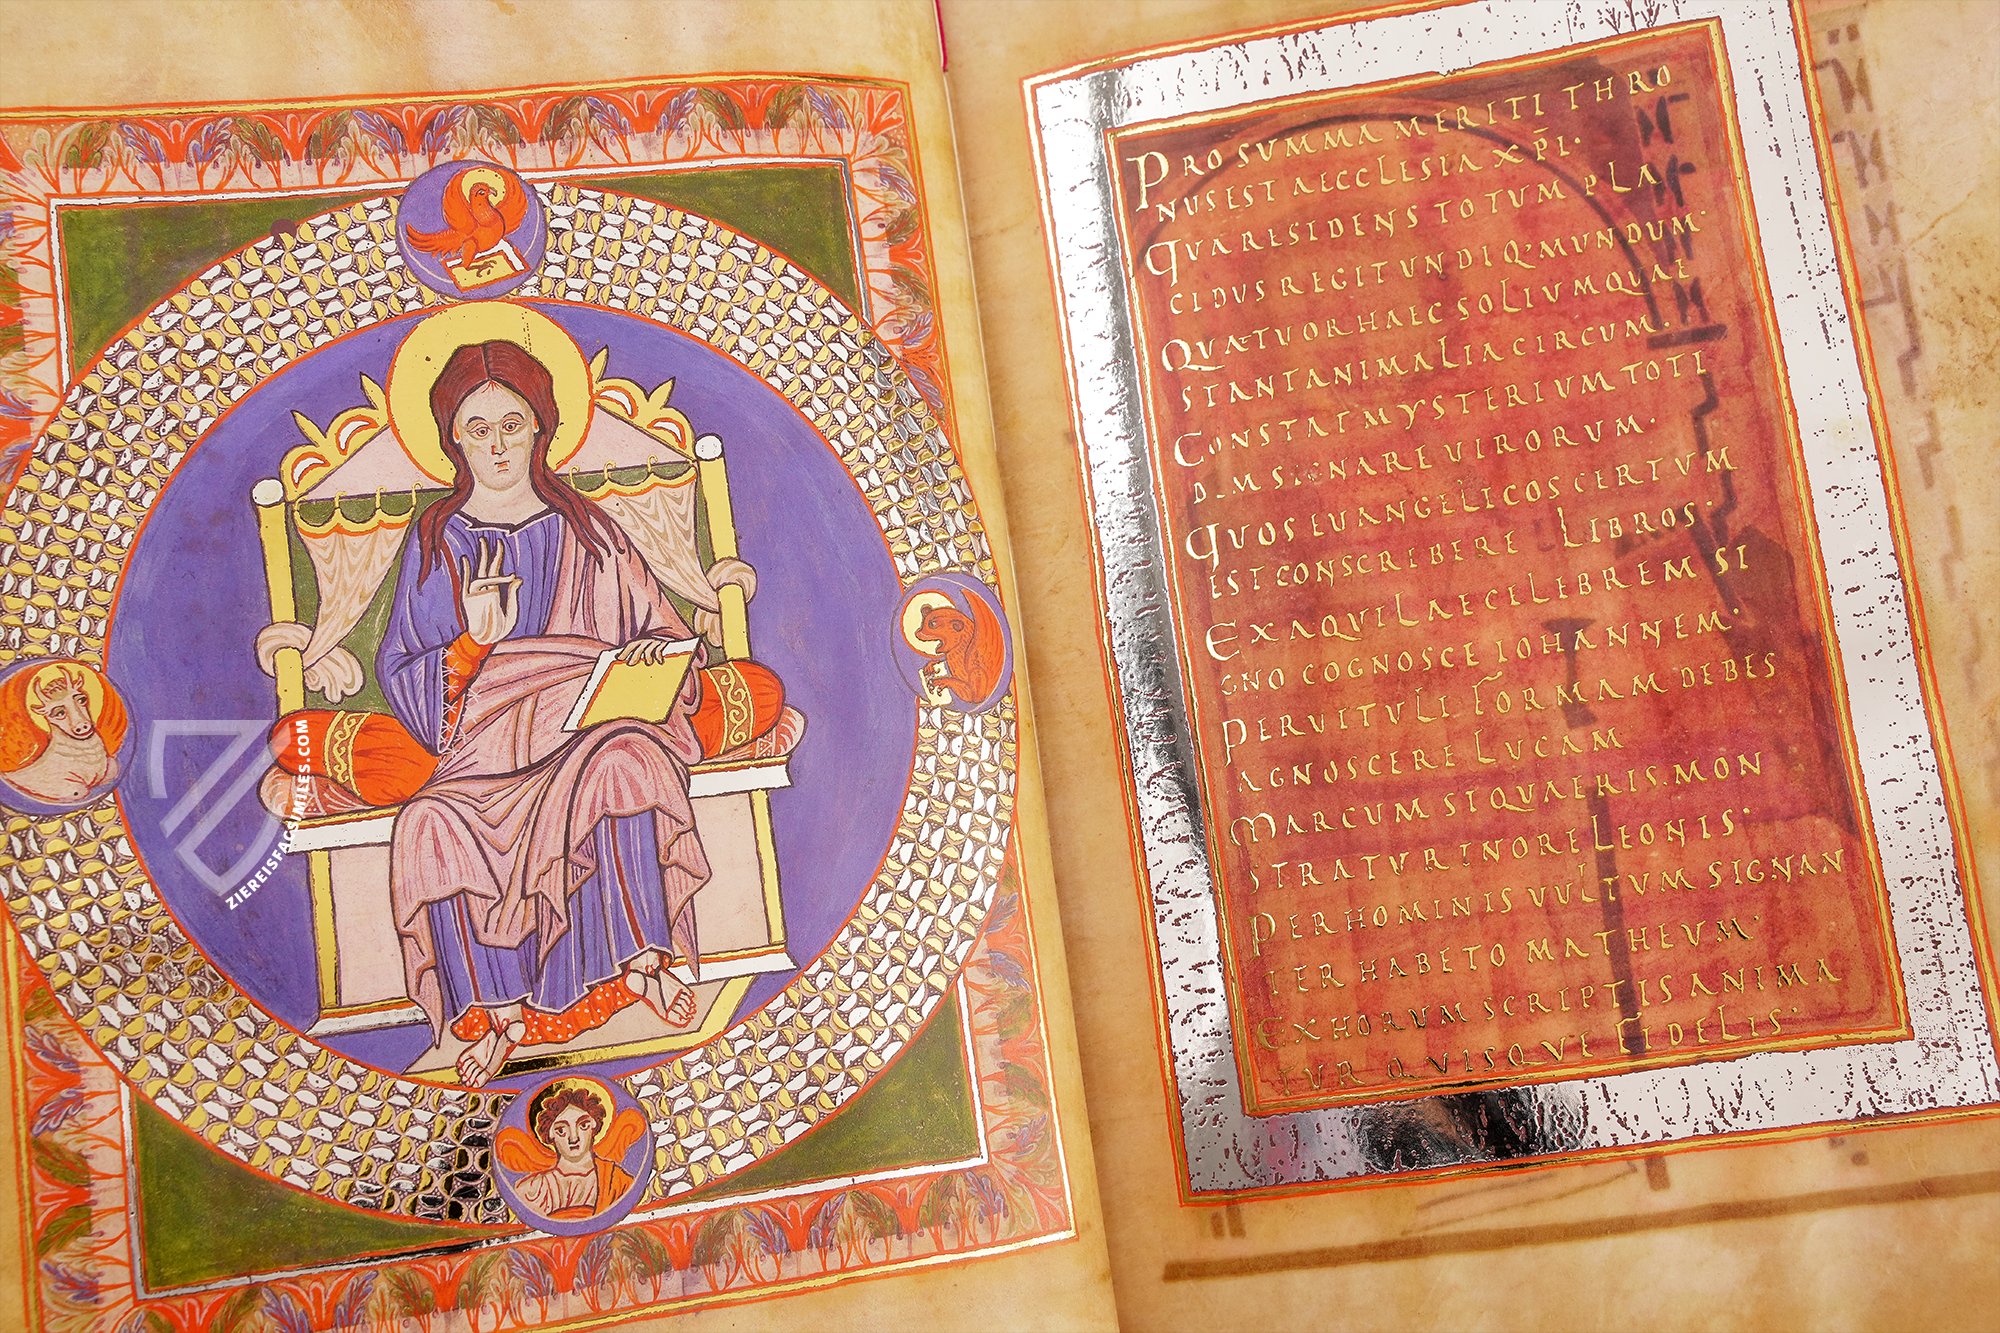 PRO SUMMA MERITI THRO
NUS EST AECCLESIA XPI·
QUA RESIDENS TOTUM PLA
CIDUS REGIT UNDIQ; MUNDUM·
QUATUOR HAEC SOLIUM QUAE
STANT ANIMALIA CIRCUM·
CONSTAT MYSTERIUM TOTI
DEM SIGNARE VIRORUM·
QUOS EUANGELICOS CERTUM
EST CONSCRIBERE LIBROS·
EX AQUILA E CELEBREM SI
GNO COGNOSCE IOHANNEM·
PER UITULI FORMAM DEBES
AGNOSCERE LUCAM
MARCUM SI QUAERIS, MON
STRATUR IN ORE LEONIS·
PER HOMINIS UULTUM SIGNAN
TER HABETO MATHEUM·
EX HORUM SCRIPTIS ANIMA
TUR QUISQUE FIDELIS·
ZIEREISFACSIMILES.COM